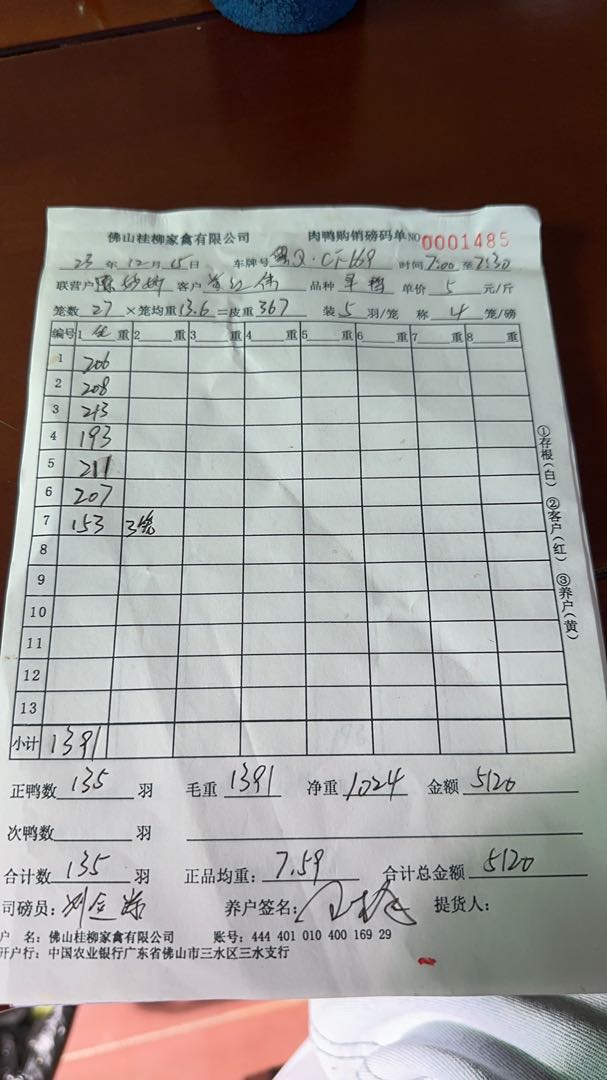 佛山桂柳家禽有限公司 肉鸭购销磅码单 NO 0001485
23 年 12 月 15 日 车牌号 时间 7:00 至 7:30
联营户 客户 品种 单价 5 元/斤
笼数 27 ×笼均重 13.6 =皮重 367 装 5 羽/笼 称 4 笼/磅
编号 1 重 2 重 3 重 4 重 5 重 6 重 7 重 8 重
1 206
2 208
3 213
4 193
5 211
6 207
7 153 3笼
8
9
10
11
12
13
小计 1391
①存根(白) ②客户(红) ③养户(黄)
正鸭数 135 羽 毛重 1391 净重 1024 金额 5120
次鸭数 羽
合计数 135 羽 正品均重: 7.59 合计总金额 5120
司磅员: 养户签名: 提货人:
户 名: 佛山桂柳家禽有限公司 账号: 444 401 010 400 169 29
开户行: 中国农业银行广东省佛山市三水区三水支行